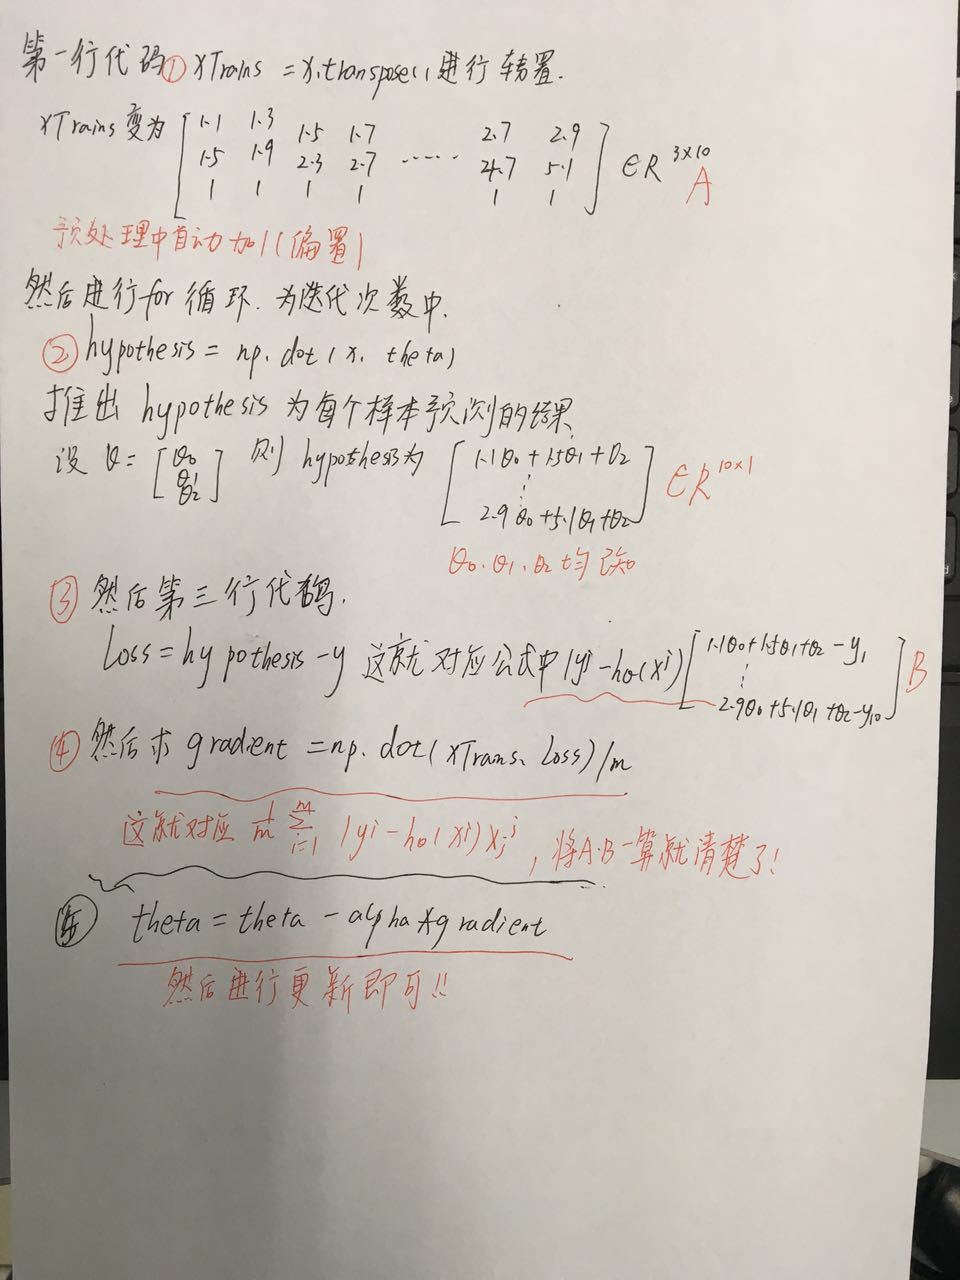 第一行代码① xTrains = x.transpose() 进行转置.
xTrains 变为 [1.1 1.3 1.5 1.7 ...... 2.7 2.9
1.5 1.9 2.3 2.7 4.7 5.1
1 1 1 1 1 1] ∈R 3×10
A
预处理中自动加1(偏置)
然后进行for循环.为迭代次数中.
② hypothesis = np.dot(x, theta)
推出 hypothesis 为每个样本预测的结果
设 θ = [θ0 θ1 θ2] 则 hypothesis为 [1.1θ0 + 1.5θ1 + θ2
⋮
2.9θ0 + 5.1θ1 + θ2] ∈R 10×1
θ0. θ1. θ2 均已知
③ 然后第三行代码.
Loss = hypothesis - y 这就对应公式中(y^i - hθ(x^i)) [1.1θ0 + 1.5θ1 + θ2 - y1
⋮
2.9θ0 + 5.1θ1 + θ2 - y10] B
④ 然后求 gradient = np.dot(xTrans, Loss)/m
这就对应 1/m Σ_{i=1}^{m} (y^i - hθ(x^i)) x_j^i , 将A·B一算就清楚了!
⑤ theta = theta - alpha * gradient
然后进行更新即可!!